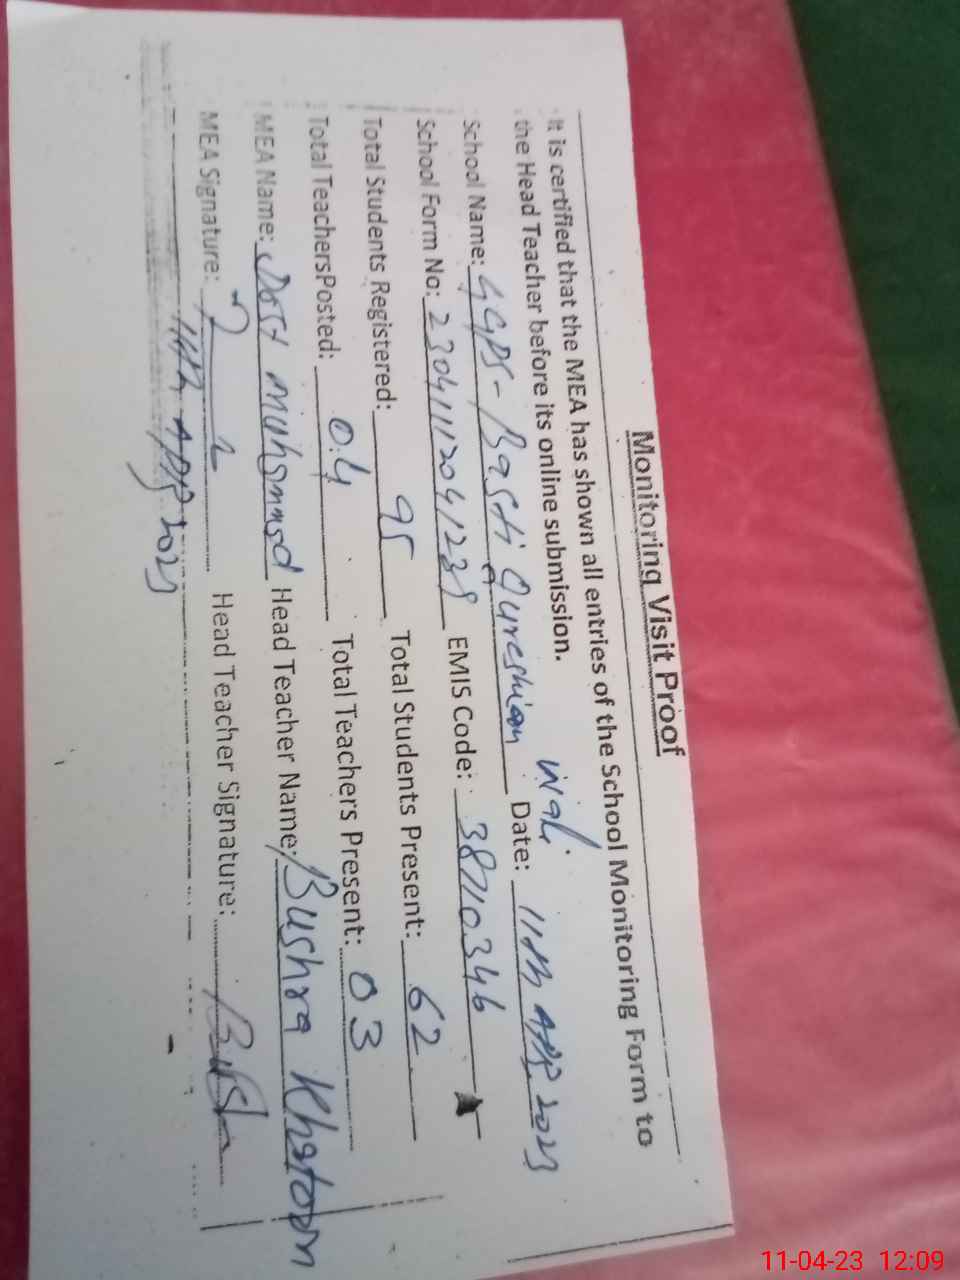 Monitoring Visit Proof
It is certified that the MEA has shown all entries of the School Monitoring Form to
the Head Teacher before its online submission.
School Name: GGPS-Basti Qureshian Wali Date: 11th APR 2023
School Form No: EMIS Code: 38710346
Total Students Registered: 95 Total Students Present: 62
Total TeachersPosted: 04 Total Teachers Present: 03
MEA Name: Dost muhammad Head Teacher Name: Bushra Khatoon
MEA Signature: Head Teacher Signature:
11th APR 2023
11-04-23 12:09